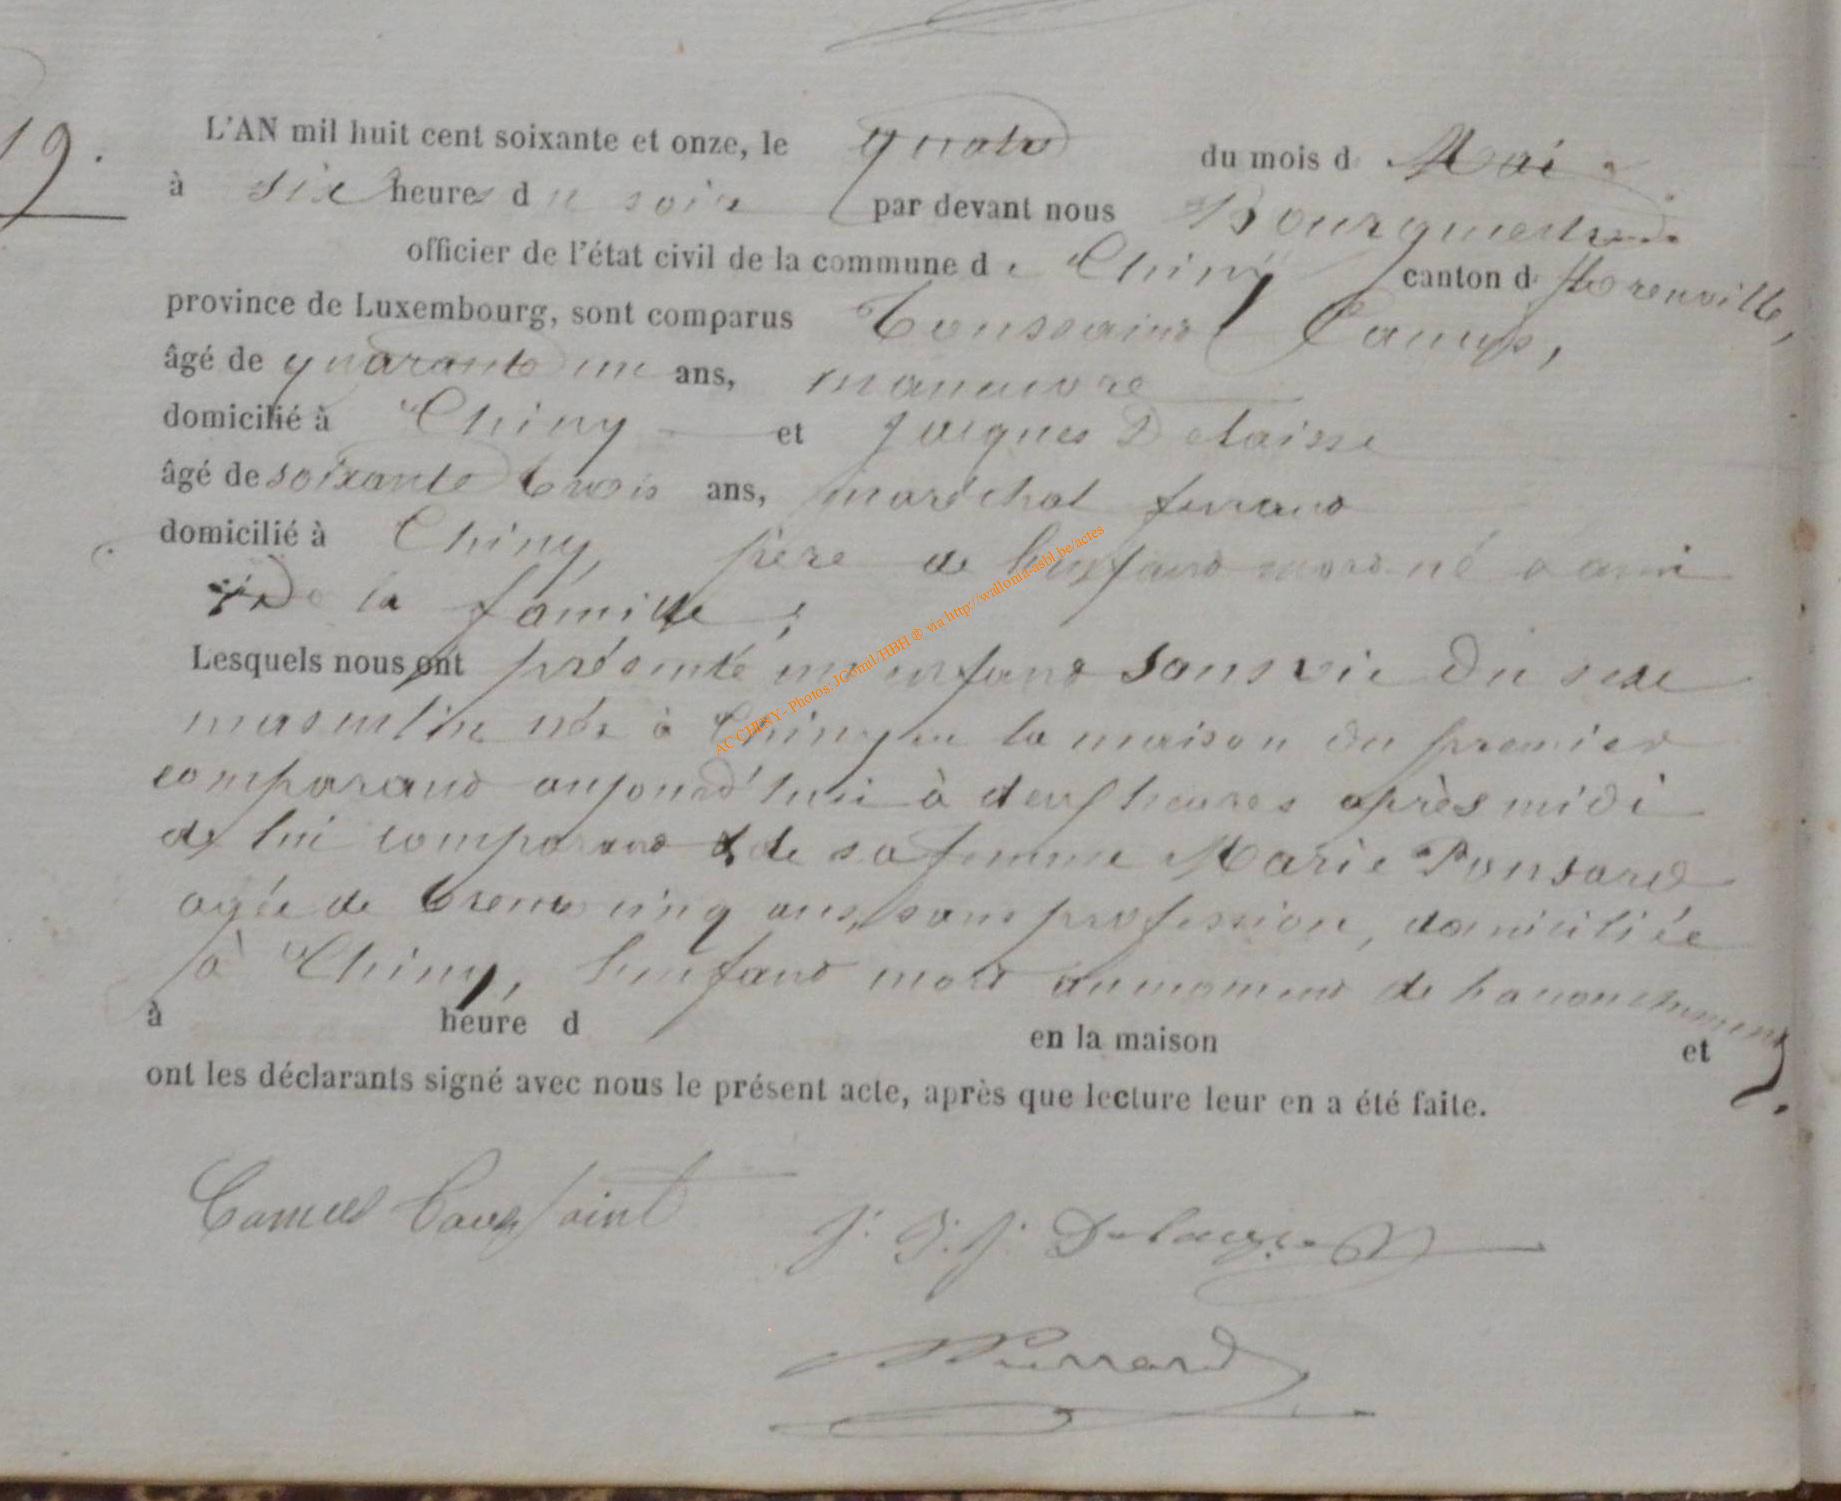 19.
L'AN mil huit cent soixante et onze, le quatre du mois de Mai
à six heures du soir par devant nous Bourgmestre
officier de l'état civil de la commune de Chiny canton de Florenville,
province de Luxembourg, sont comparus Toussaint Camus,
âgé de quarante un ans, manœuvre
domicilié à Chiny et Jacques Delaisse
âgé de soixante trois ans, maréchal ferrant
domicilié à Chiny, père de l'enfant mort né & ami
de la famille;
Lesquels nous ont présenté un enfant sans vie du sexe
masculin née à Chiny en la maison du premier
comparant aujourd'hui à deux heures après midi
de lui comparant & de sa femme Marie Ponsard
agée de trente cinq ans, sans profession, domiciliée
à Chiny, l'enfant mort au moment de l'accouchement,
à heure d en la maison et
ont les déclarants signé avec nous le présent acte, après que lecture leur en a été faite.
Camus Toussaint J. J. J. Delaisse
Pierrard
AC CHINY- Photos: JComil/HBH ® via http://wallonia-asbl.be/actes